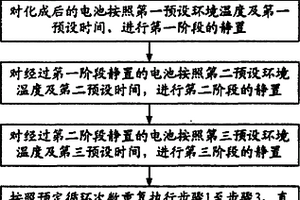 对化成后的电池按照第一预设环境温度及第一
预设时间、进行第一阶段的静置
对经过第一阶段静置的电池按照第二预设环境
温度及第二预设时间，进行第二阶段的静置
对经过第二阶段静置的电池按照第三预设环境
温度及第三预设时间，进行第三阶段的静置
按照预定循环次数重复执行步骤1至步骤3，直